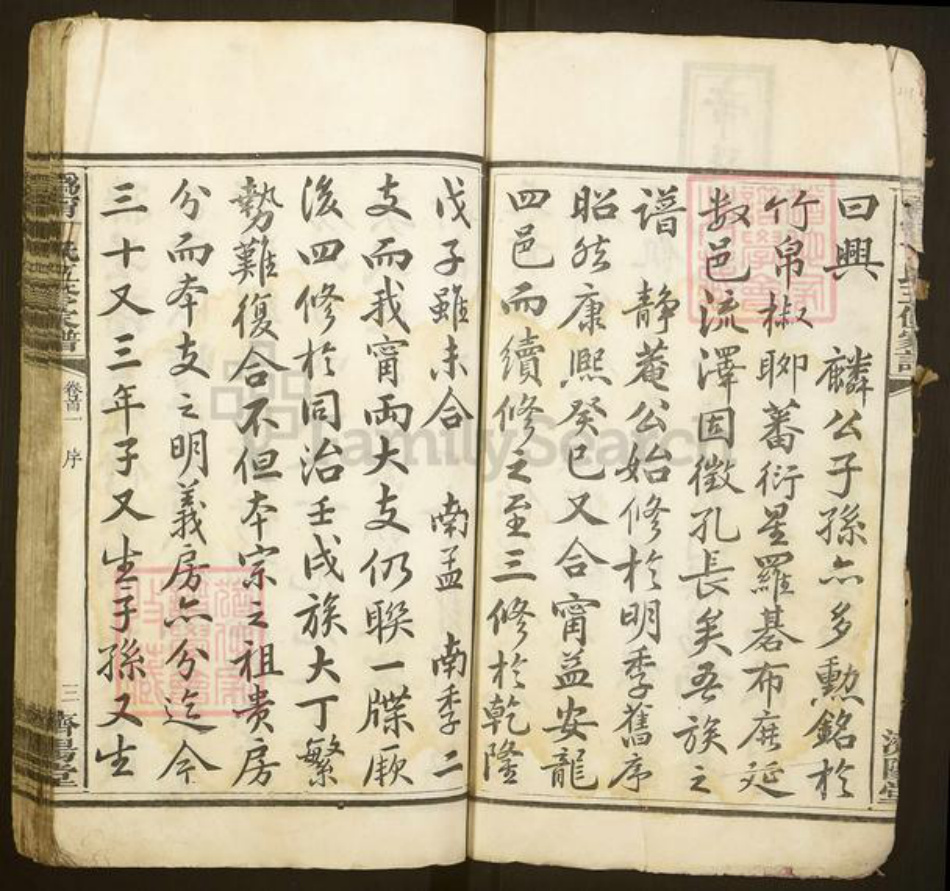 曰興　麟公子孫亦多勳銘於
竹帛椒聊蕃衍星羅碁布庶延
数邑流澤固徵孔長矣吾族之
譜　靜菴公始修於明季舊序
昭然康熙癸巳又合甯益安龍
四邑而續修之至三修於乾隆
戊子雖未合　南孟　南季二
支而我甯兩大支仍聯一牒厥
後四修於同治壬戌族大丁繁
勢難復合不但本宗之祖贵房
分而本支之明義房亦分迄今
三十又三年子又生子孫又生
卷首一　序
三　濟陽堂
FamilySearch